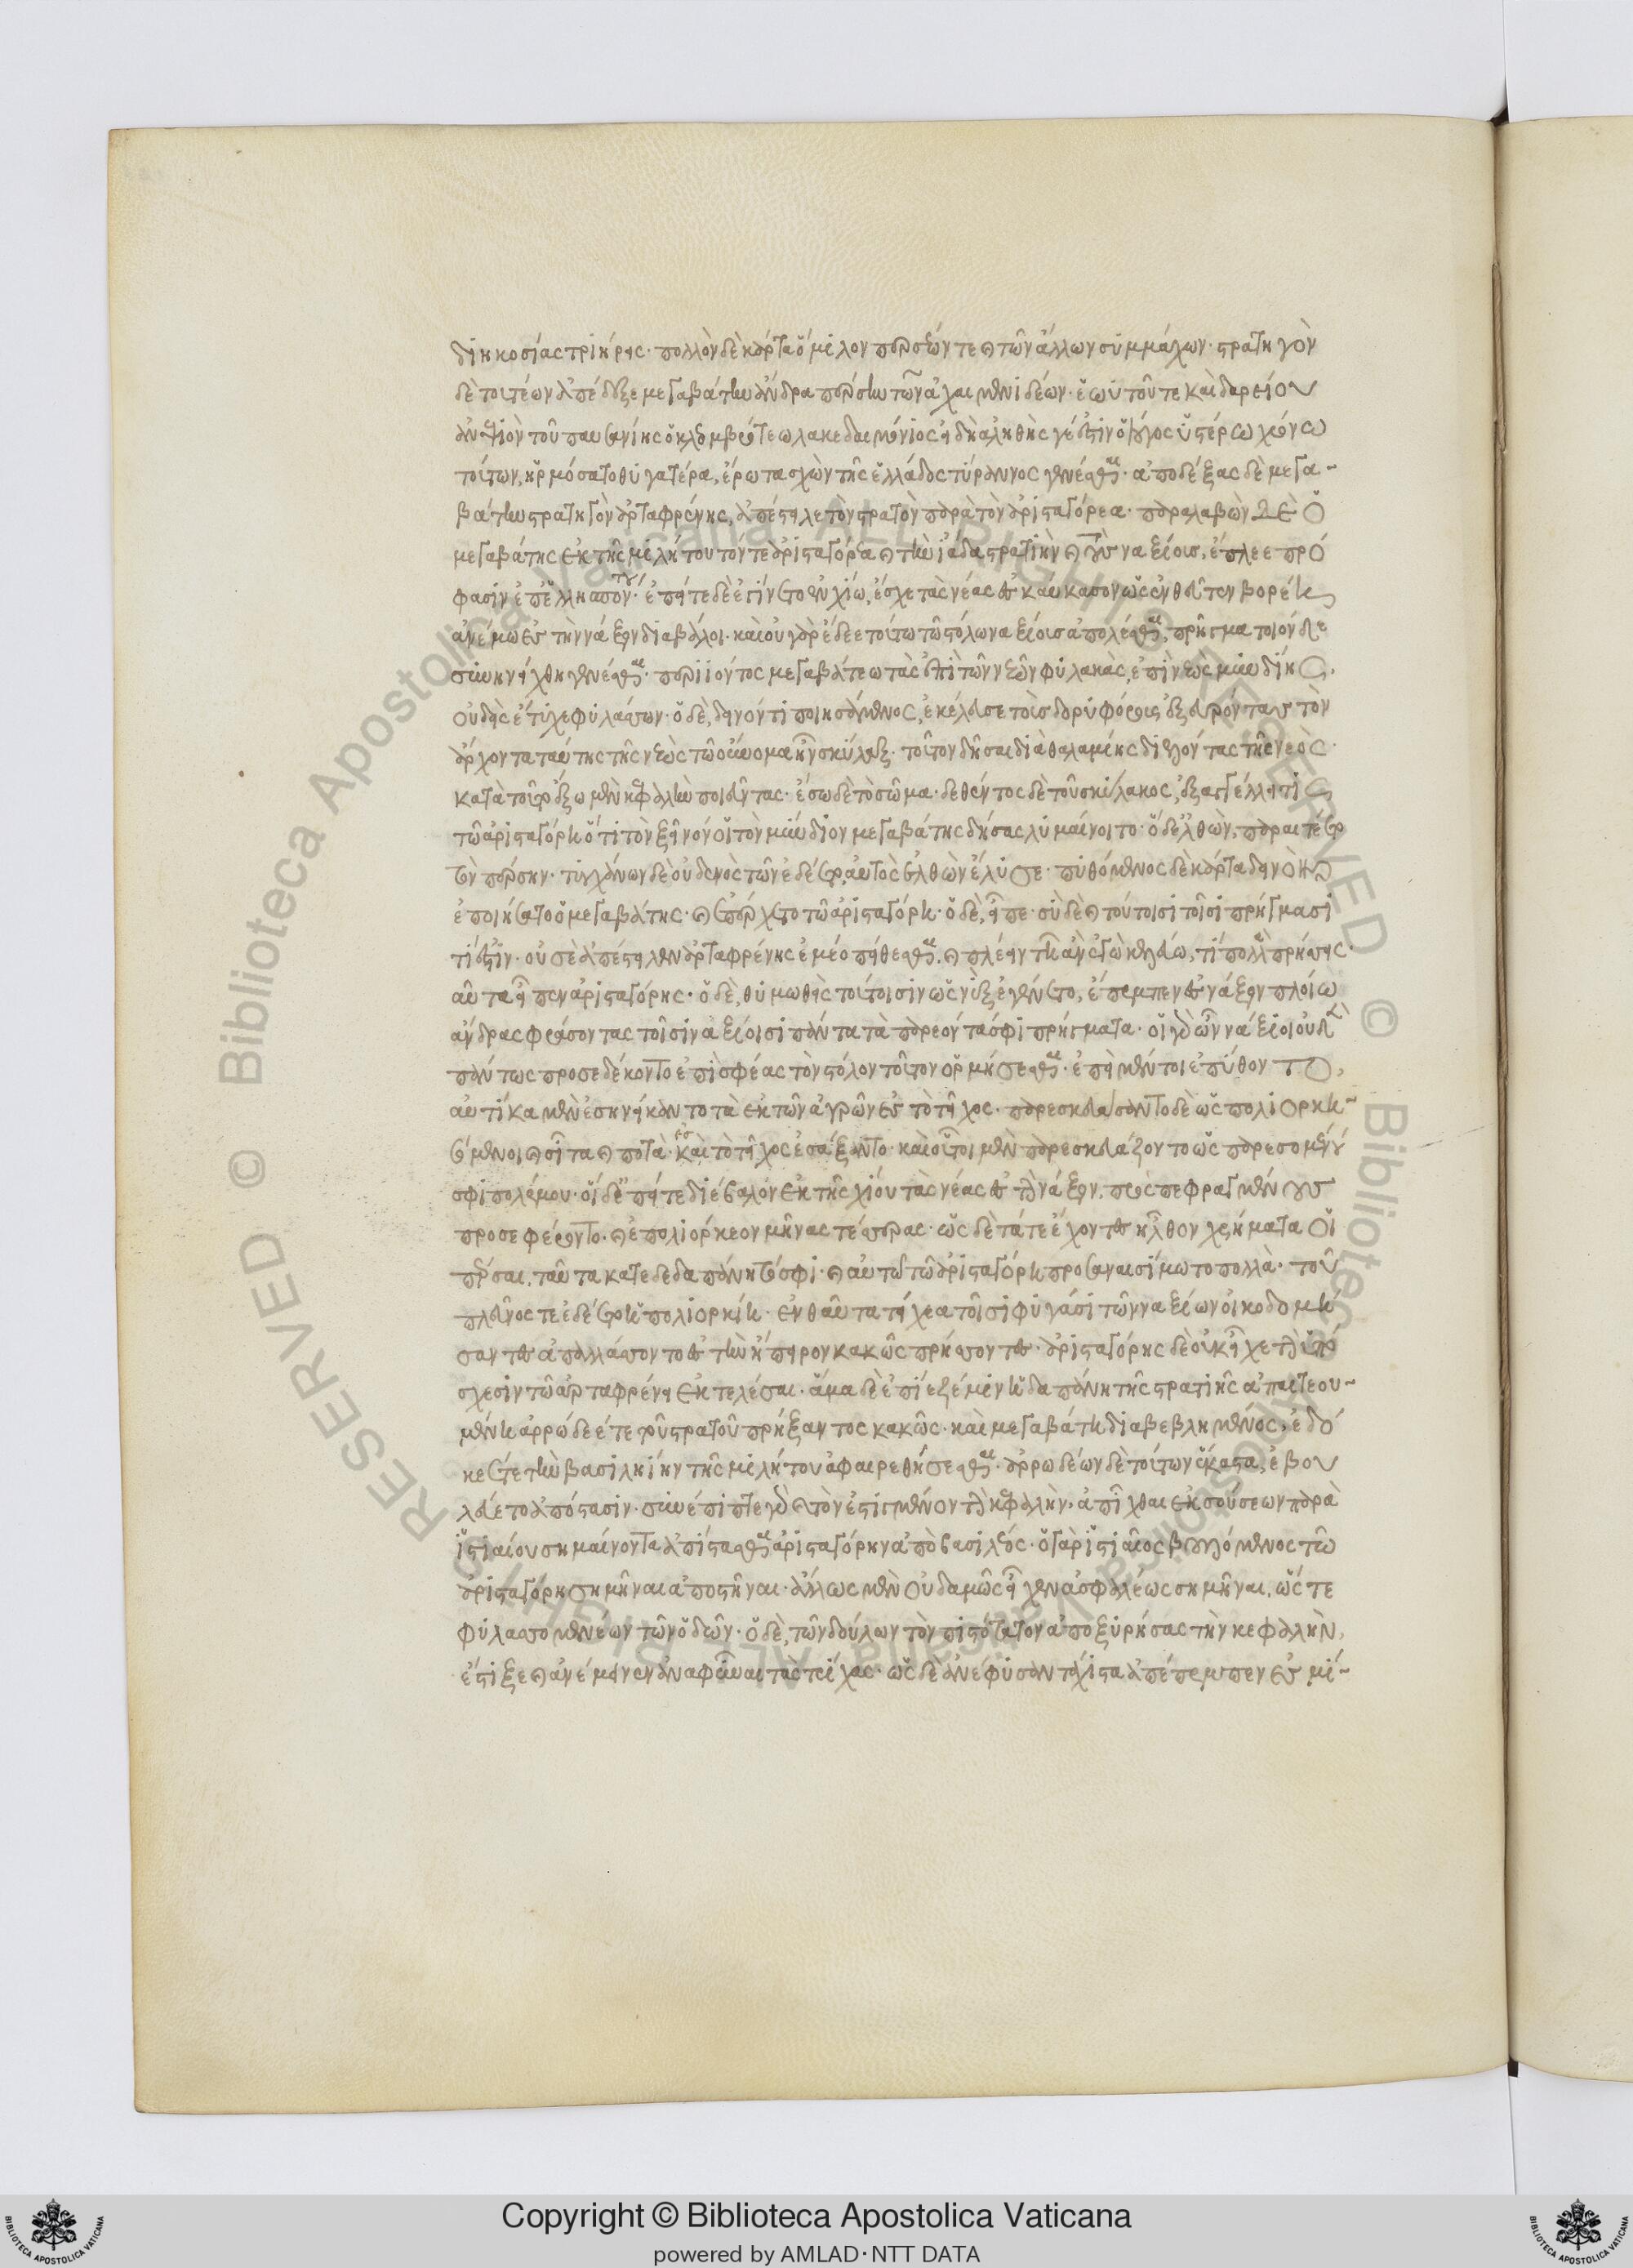 διηκοσίας τριήρης· πολλὸν δὲ κάρτα ὅμιλον περσέων τε καὶ τῶν ἄλλων συμμάχων· στρατηγὸν
δὲ τούτέων ἀπέδεξε μεγαβάτην ἄνδρα πέρσην τῶν ἀχαιμενιδέων· ἑωυτοῦ τε καὶ δαρείου
ἀνεψιὸν τοῦ παυσανίης ὁ κλεομβρότεω λακεδαιμόνιος εἰ δὴ ἀληθής γέ ἐστιν ὁ λόγος ὑστέρω χρόνω
τούτων, ἡρμόσατο θυγατέρα, ἔρωτα σχὼν τῆς ἑλλάδος τύραννος γενέσθαι· ἀποδέξας δὲ μεγα-
βάτην στρατηγὸν ἀρταφρένης, ἀπέστειλε τὸν στρατὸν παρὰ τὸν ἀρισταγόρεα· παραλαβὼν δὲ ὁ
μεγαβάτης ἐκ τῆς μιλήτου τόν τε ἀρισταγόρεα καὶ τὴν ἰάδα στρατιὴν καὶ τοὺς ναξίους, ἔπλεε πρό
φασιν ἐπ' ἑλλησπόντου· ἐπείτε δὲ ἐγίνετο ἐν χίω, ἔσχε τὰς νέας ἐς καύκασον ὡς ἐνθεῦτεν βορέη
ἀνέμω ἐς τὴν νάξον διαβάλοι· καὶ οὐ γὰρ ἔδεε τούτω τῶ στόλω ναξίους ἀπολέσθαι, πρῆγμα τοιόνδε
συνηνείχθη γενέσθαι· περιιόντος μεγαβάτεω τὰς ἐπὶ τῶν νεῶν φυλακὰς, ἐπὶ νεὼς μυνδίης
οὐδεὶς ἔτυχε φυλάσσων· ὁ δὲ, δεινόν τι ποιησάμενος, ἐκέλευσε τοὺς δορυφόρους ἐξευρόντας τὸν
ἄρχοντα ταύτης τῆς νεὼς τῶ οὔνομα ἦν σκύλαξ· τοῦτον δῆσαι διὰ θαλαμίης διελόντας τῆς νεὸς
κατὰ τοῦτο ἔξω μὲν κεφαλὴν ποιεῦντας· ἔσω δὲ τὸ σῶμα· δεθέντος δὲ τοῦ σκύλακος, ἐξαγγέλλει τις
τῶ ἀρισταγόρη ὅτι τὸν ξεῖνόν οἱ τὸν μύνδιον μεγαβάτης δήσας λυμαίνοιτο· ὁ δ' ἐλθὼν, παραιτέετο
τὸν πέρσην· τυγχάνων δὲ οὐδενὸς τῶν ἐδέετο, αὐτὸς ἐλθὼν ἔλυσε· πυθόμενος δὲ κάρτα δεινὸν
ἐποιήσατο ὁ μεγαβάτης· καὶ ἐσπέρχετο τῶ ἀρισταγόρη· ὁ δὲ, εἶπε· σοὶ δὲ καὶ τούτοισι τοῖσι πρήγμασι
τί ἐστιν· οὔ σε ἀπέστειλεν ἀρταφρένης ἐμέο πείθεσθαι. καὶ πλέειν τῆ ἂν ἐγὼ κελεύω, τί πολλὰ πρήσσεις·
αὖτα εἶπεν ἀρισταγόρης· ὁ δὲ, θυμωθεὶς τούτοισιν ὡς νὺξ ἐγένετο, ἔπεμπεν ἐς νάξον πλοίω
ἄνδρας φράσοντας τοῖσι ναξίοισι πάντα τὰ παρεόντα σφι πρήγματα· οἱ γὰρ ὦν νάξιοι οὐδὲν
πάντως προσεδέκοντο ἐπὶ σφέας τὸν στόλον τοῦτον ὁρμήσεσθαι· ἐπεὶ μέντοι ἐπύθοντο,
αὐτίκα μὲν ἐσηνείκαντο τὰ ἐκ τῶν ἀγρῶν ἐς τὸ τεῖχος· παρεσκευάσαντο δὲ ὡς πολιορκη-
σόμενοι καὶ σῖτα καὶ ποτὰ· καὶ τὸ τεῖχος ἐσάξαντο· καὶ οὗτοι μὲν παρεσκευάζοντο ὡς παρεσομένου
σφι πολέμου· οἱ δ' ἐπείτε διέβαλον ἐκ τῆς χίου τὰς νέας ἐς τὴν νάξον, πρὸς πεφραγμένους
προσεφέροντο· καὶ ἐπολιόρκεον μῆνας τέσσερας· ὡς δὲ τά τε ἔχοντες ἦλθον χρήματα οἱ
πέρσαι, ταῦτα κατεδεδαπάνητό σφι· καὶ αὐτῶ τῶ ἀρισταγόρη προσαναισίμωτο πολλὰ· τοῦ
πλεῦνός τε ἐδέετο ἡ πολιορκίη· ἐνθαῦτα τείχεα τοῖσι φυγάσι τῶν ναξίων οἰκοδομή
σαντες ἀπαλλάσσοντο ἐς τὴν ἤπειρον κακῶς πρήσσοντες· ἀρισταγόρης δὲ οὐκ εἶχε τὴν ὑπό
σχεσιν τῶ ἀρταφρένη ἐκτελέσαι· ἅμα δὲ ἐπίεζέ μιν ἡ δαπάνη τῆς στρατιῆς ἀπαιτεου-
μένη ἀρρώδεέ τε τοῦ στρατοῦ πρήξαντος κακῶς· καὶ μεγαβάτη διαβεβλημένος, ἐδό
κεέ τε τὴν βασιληίην τῆς μιλήτου ἀφαιρεθήσεσθαι· ἀρρωδέων δὲ τούτων ἕκαστα, ἐβου
λεύετο ἀπόστασιν· συνέπιπτε γὰρ καὶ τὸν ἐστιγμένον τὴν κεφαλὴν, ἀπῖχθαι ἐκ σούσεων παρὰ
ἱστιαίου σημαίνοντα ἀπίστασθαι ἀρισταγόρην ἀπὸ βασιλέος· ὁ γὰρ ἱστιαῖος βουλόμενος τῶ
ἀρισταγόρη σημῆναι ἀποστῆναι· ἄλλως μὲν οὐδαμῶς εἶχεν ἀσφαλέως σημῆναι, ὥστε
φυλασσομενέων τῶν ὁδῶν· ὁ δὲ, τῶν δούλων τὸν πιστότατον ἀποξυρήσας τὴν κεφαλὴν,
ἔστιξε καὶ ἀνέμεινεν ἀναφῦναι τὰς τρίχας· ὡς δὲ ἀνέφυσαν τάχιστα ἀπέπεμπεν ἐς μί-
Copyright © Biblioteca Apostolica Vaticana
powered by AMLAD·NTT DATA